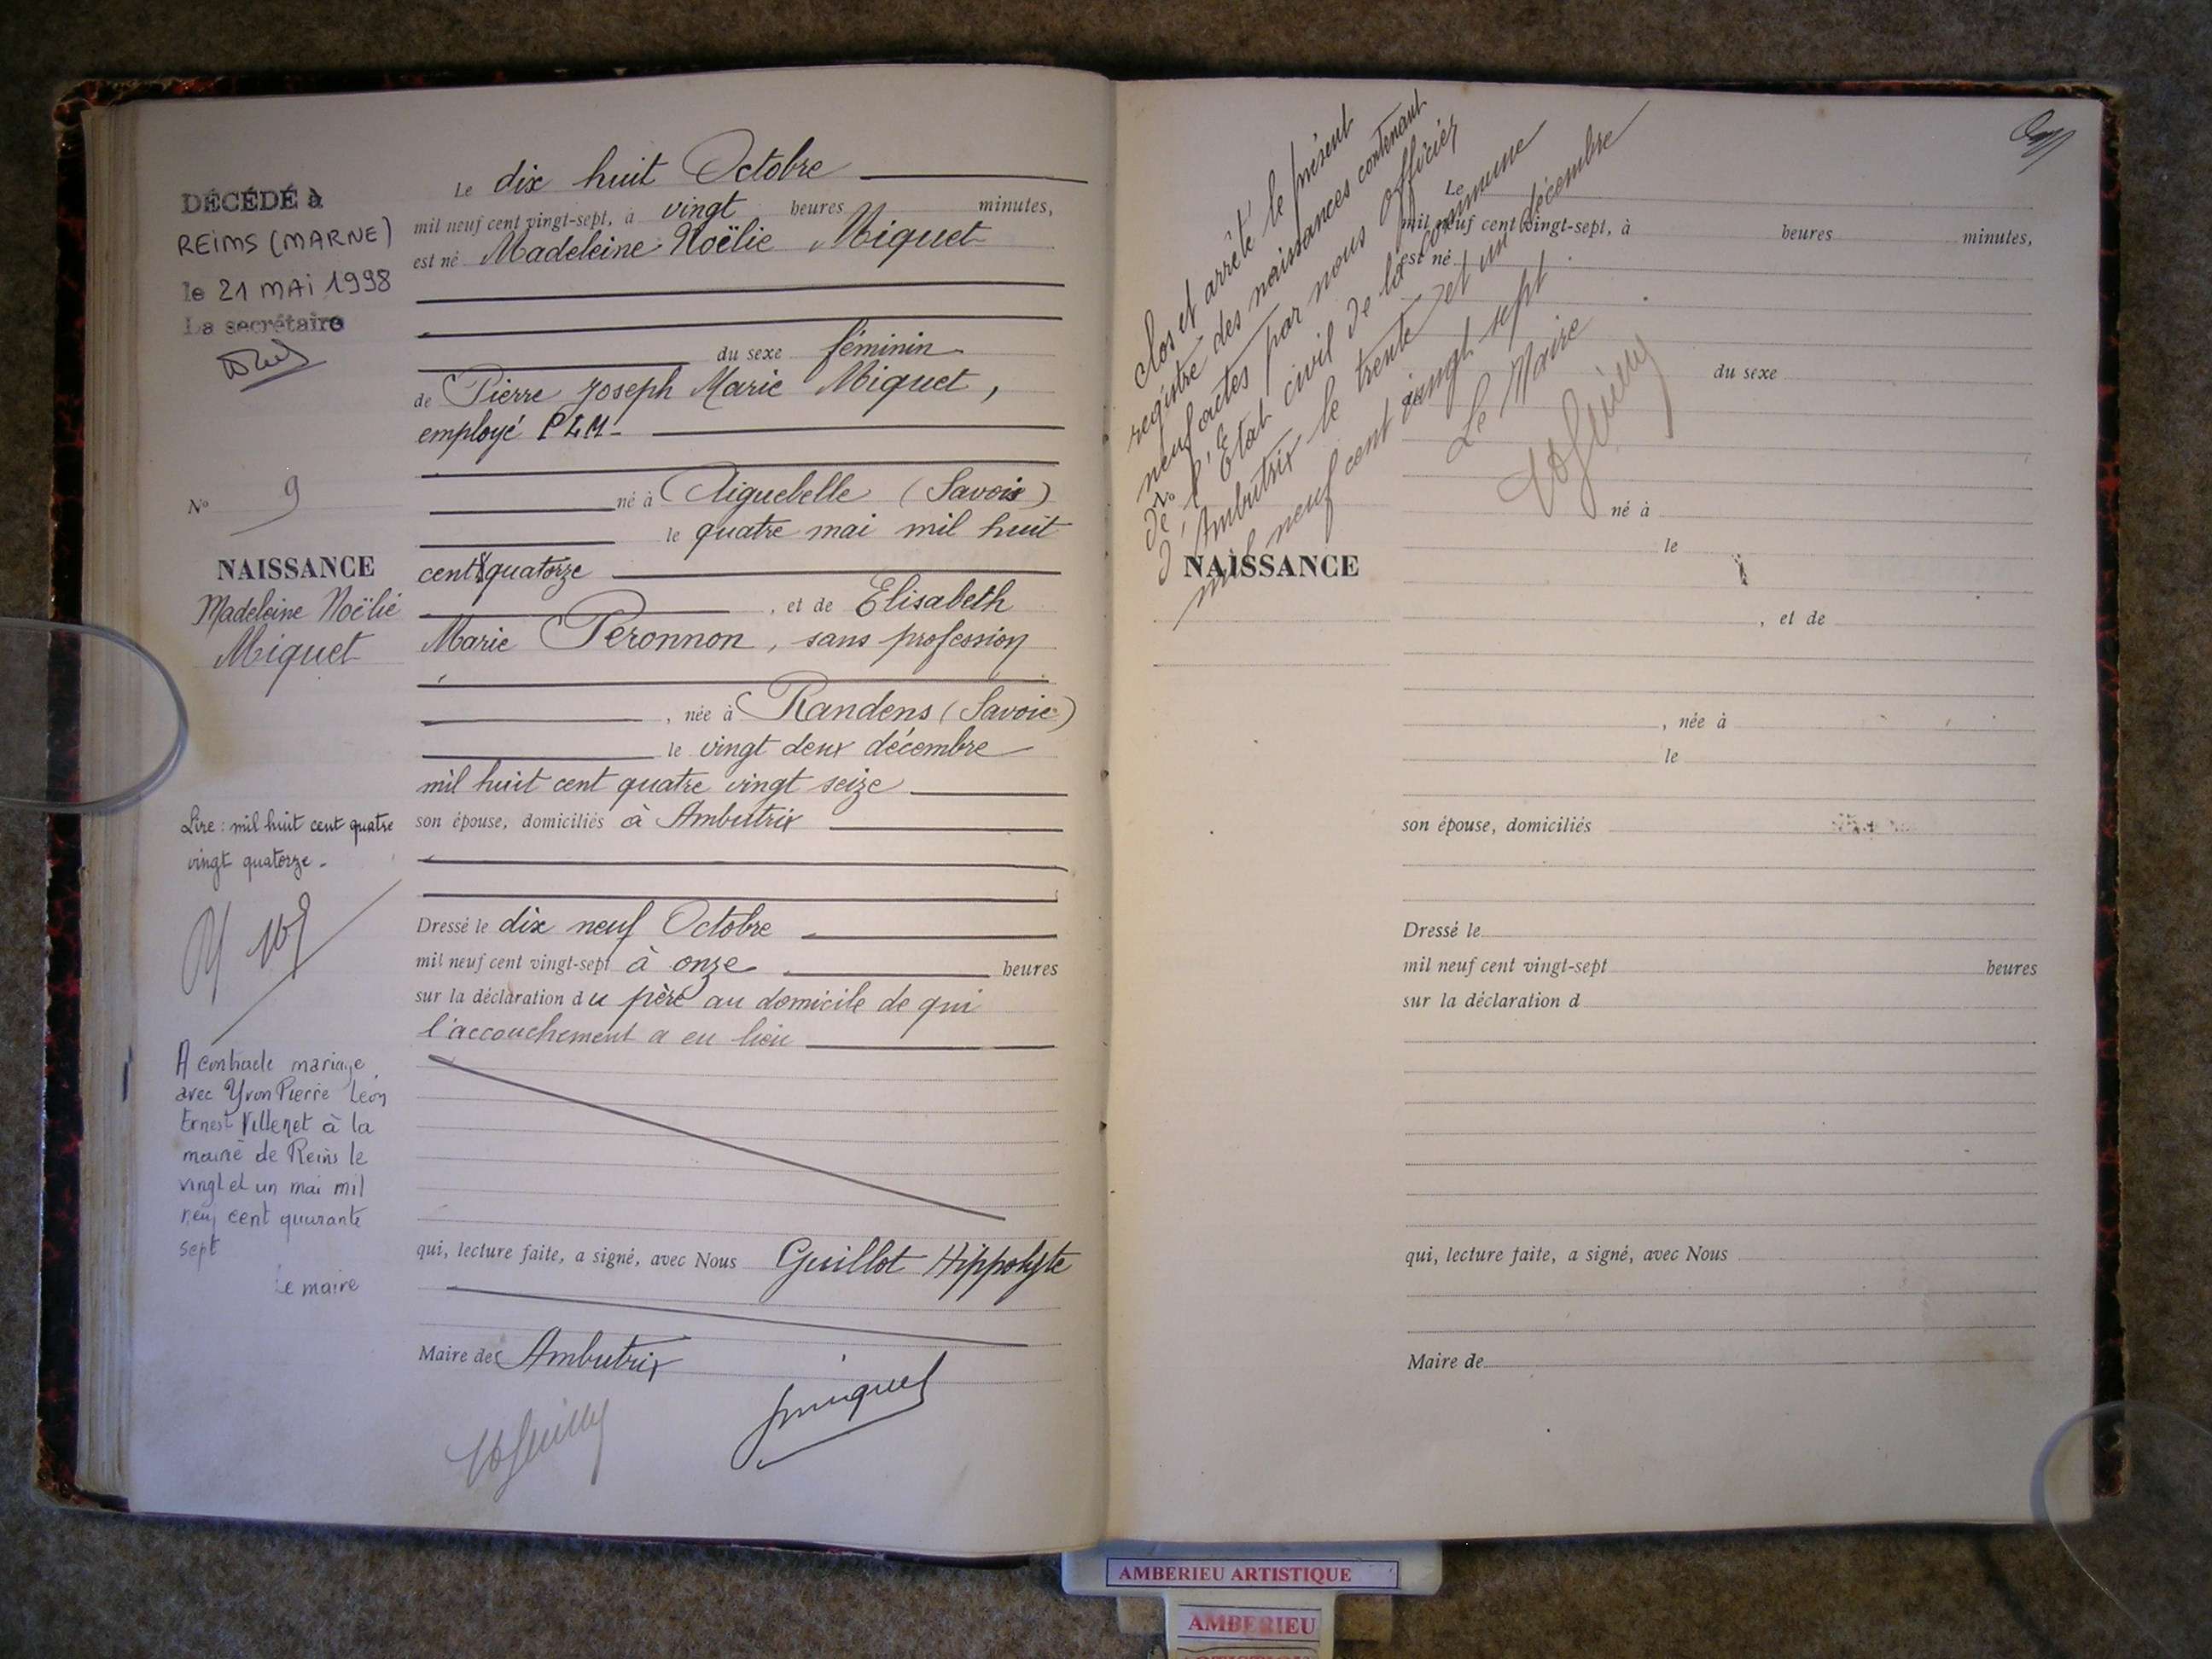 DÉCÉDÉ à
REIMS (MARNE)
le 21 MAI 1998
La secrétaire
N° 9
NAISSANCE
Madeleine Noëlie
Miquet
Lire : mil huit cent quatre
vingt quatorze -
A contracté mariage
avec Yvon Pierre Léon
Ernest Villenet à la
mairie de Reims le
vingt et un mai mil
neuf cent quarante
sept
Le maire
Le dix huit Octobre
mil neuf cent vingt-sept, à vingt heures minutes,
est né Madeleine Noëlie Miquet
du sexe féminin
de Pierre Joseph Marie Miquet,
employé PLM-
né à Aiguebelle (Savoie)
le quatre mai mil huit
cent quatorze
, et de Elisabeth
Marie Peronnon, sans profession
, née à Randens (Savoie)
le vingt deux décembre
mil huit cent quatre vingt seize
son épouse, domiciliés à Ambutrix
Dressé le dix neuf Octobre
mil neuf cent vingt-sept à onze heures
sur la déclaration du père au domicile de qui
l'accouchement a eu lieu
qui, lecture faite, a signé, avec Nous Guillot Hippolyte
Maire de Ambutrix
Jmiquet
Clos et arrêté le présent
registre des naissances contenant
neuf actes par nous Officier
de l'Etat civil de la commune
d'Ambutrix le trente et un décembre
mil neuf cent vingt sept.
Le Maire
Le
mil neuf cent vingt-sept, à heures minutes,
est né
du sexe
de
né à
le
NAISSANCE
, et de
, née à
le
son épouse, domiciliés
Dressé le
mil neuf cent vingt-sept heures
sur la déclaration d
qui, lecture faite, a signé, avec Nous
Maire de
AMBERIEU ARTISTIQUE
AMBERIEU
ARTISTIQUE